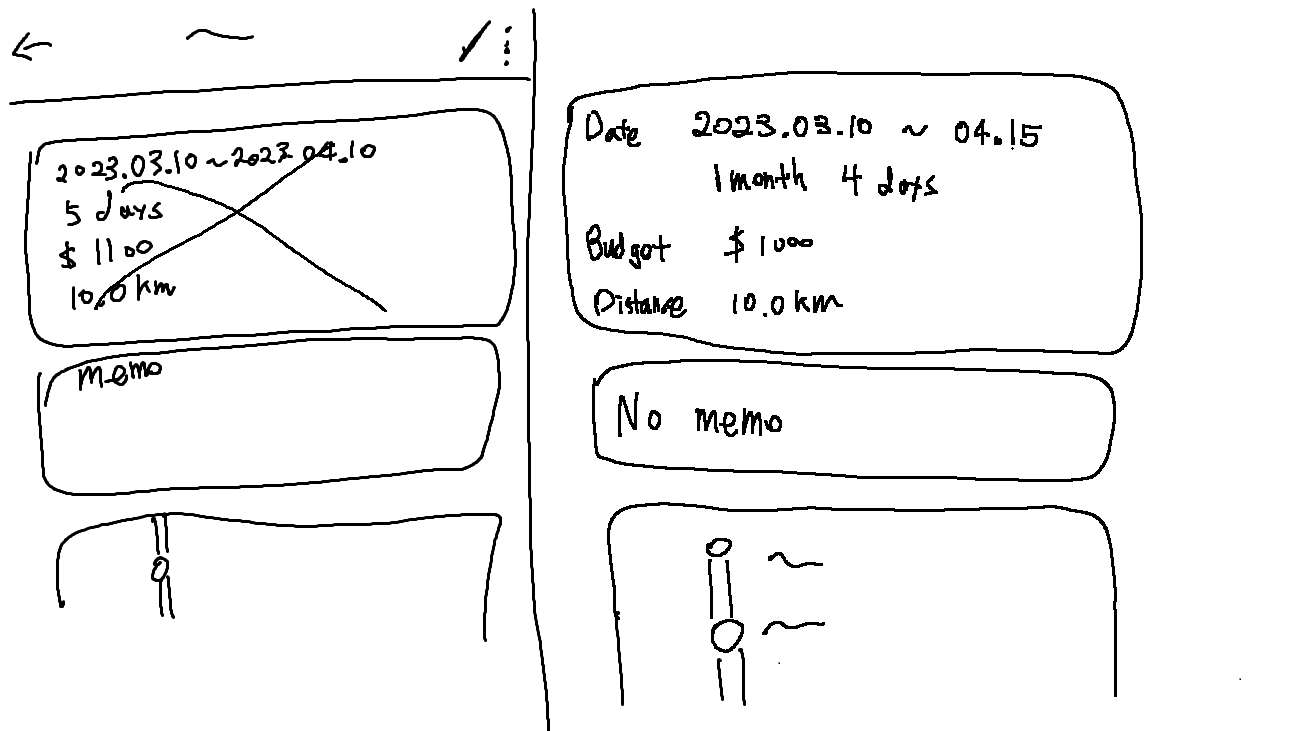 2023.03.10 ~ 2023.04.10
5 days
$ 1100
10.0 km
memo
Date 2023.03.10 ~ 04.15
1 month 4 days
Budget $ 1000
Distance 10.0 km
No memo